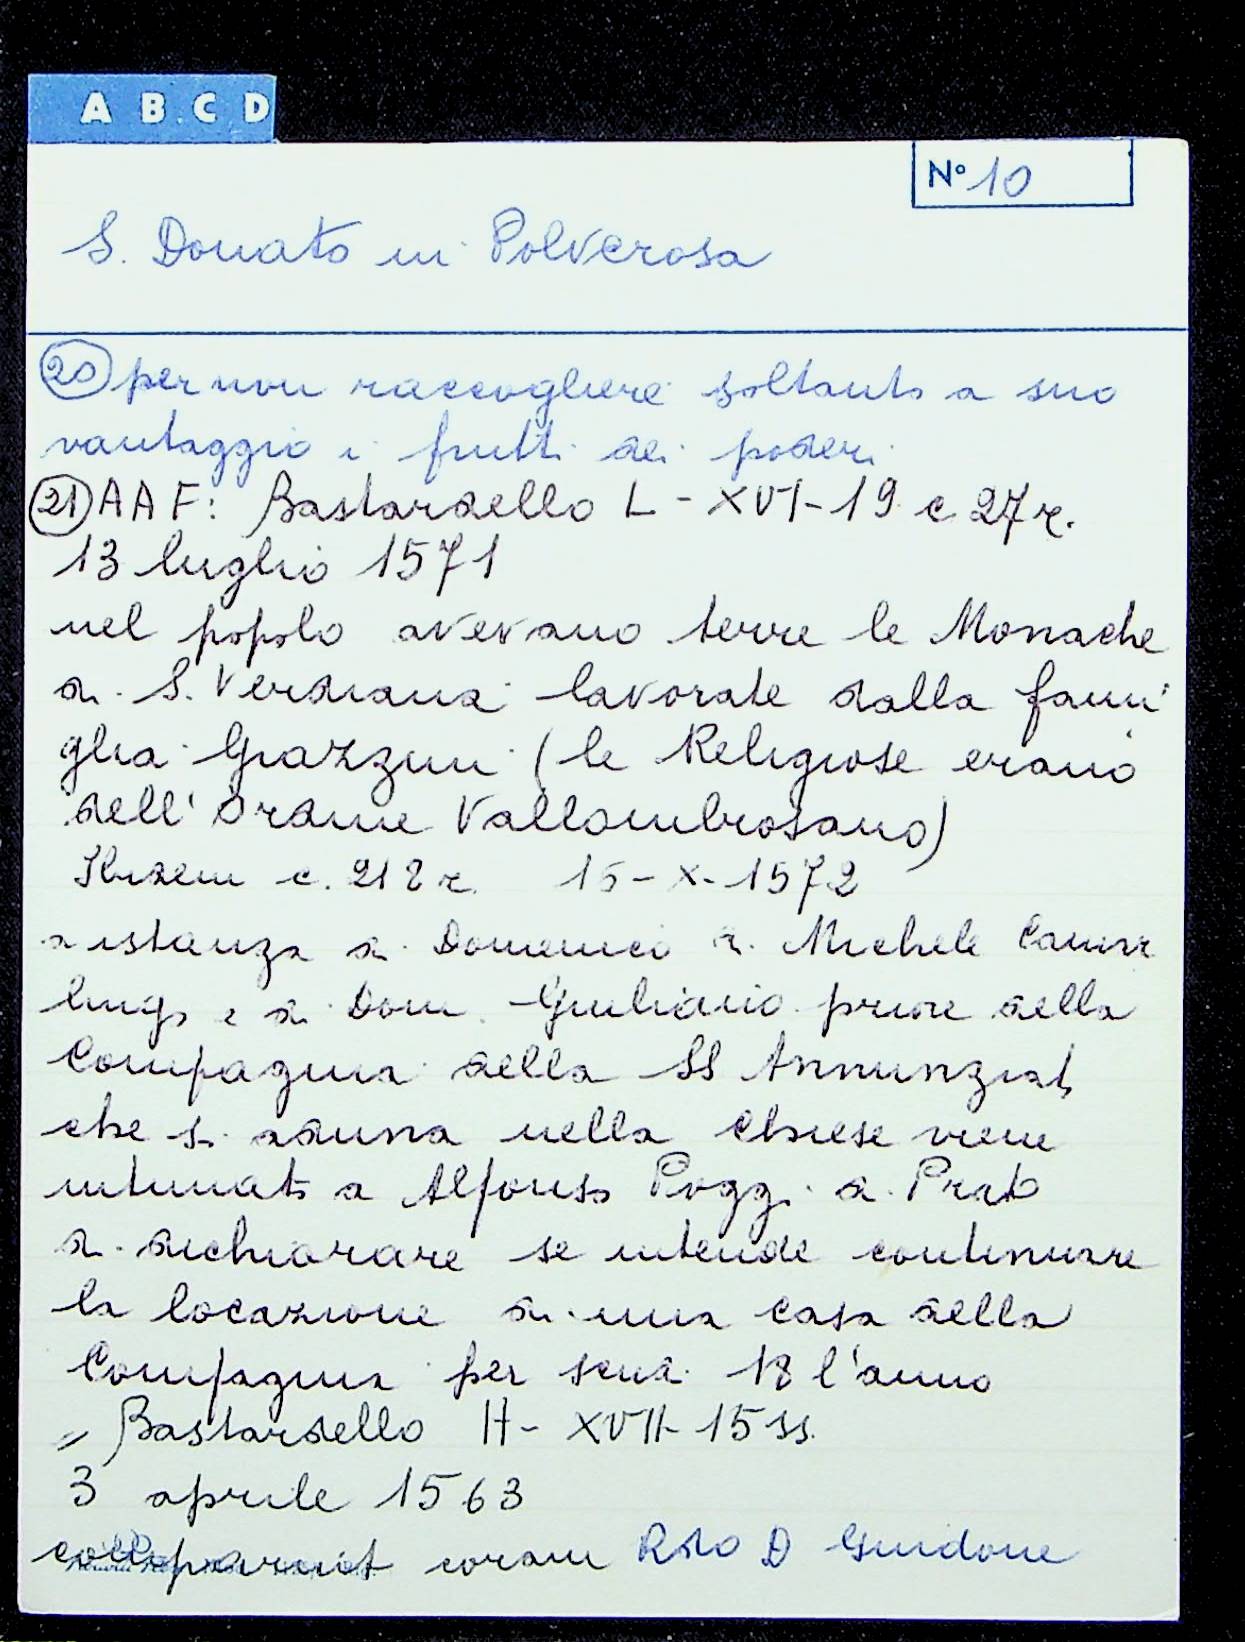 A B C D
N° 10
S. Donato in Polverosa
20 per non raccogliere soltanto a suo
vantaggio i frutti dei poderi
21 AAF: Bastardello L - XVI - 19 c 27r.
13 luglio 1571
nel popolo avevano terre le Monache
di S. Verdiana lavorate dalla fami
glia Grazzini (le Religiose erano
dell' Ordine Vallombrosano)
Ibidem c. 218 r. 15-X-1572
a istanza di Domenico di Michele
e di Dom. Giuliano priore della
Compagnia della SS Annunziata
che si aduna nella Chiesa viene
intimato a Alfonso Poggi di Prato
di dichiarare se intende continuare
la locazione di una casa della
Compagnia per scudi 18 l'anno
" Bastardello H - XVII - 15 ss.
3 aprile 1563
coram Rdo D Guidone